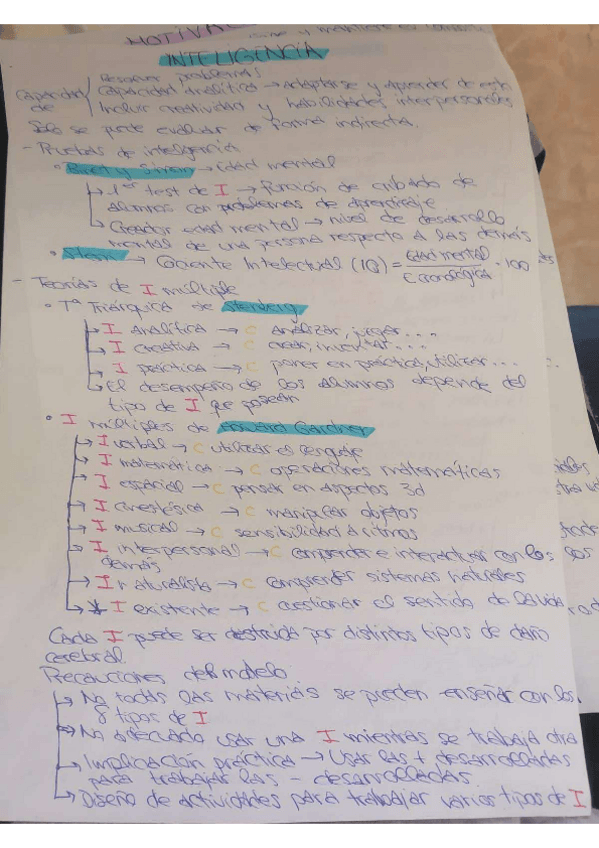 MOTIVA
INTELIGENCIA
Capacidad de
Resolver problemas
Capacidad analítica → adaptarse y aprender de esto
Incluir creatividad y habilidades interpersonales
Solo se puede evaluar de forma indirecta.
- Pruebas de inteligencia
• Binet y Simon → edad mental
↳ 1er test de I → función de cribado de
alumnos con problemas de aprendizaje
↳ Creador edad mental → nivel de desarrollo
mental de una persona respecto a las demás
• Stern → Cociente Intelectual (IQ) = Edad mental / E cronológica · 100
- Teorías de I múltiple
• Tª Triárquica de Sternberg
↳ I analítica → C analizar, juzgar...
↳ I creativa → C crear, inventar...
↳ I práctica → C poner en práctica, utilizar...
↳ El desempeño de los alumnos depende del
tipo de I que posean
• I múltiples de Howard Gardner
↳ I verbal → C utilizar el lenguaje
↳ I matemática → C operaciones matemáticas
↳ I espacial → C pensar en aspectos 3d
↳ I cinestésica → C manipular objetos
↳ I musical → C sensibilidad a ritmos
↳ I interpersonal → C comprender e interactuar con los
demás
↳ I naturalista → C comprender sistemas naturales
↳ * I existente → C cuestionar el sentido de la vida
Cada I puede ser destruida por distintos tipos de daño
cerebral.
Precauciones del modelo.
↳ No todas las materias se pueden enseñar con los
8 tipos de I
↳ No adecuado usar una I mientras se trabaja otra
↳ Implicación práctica → Usar las + desarrolladas
para trabajar las - desarrolladas
↳ Diseño de actividades para trabajar varios tipos de I